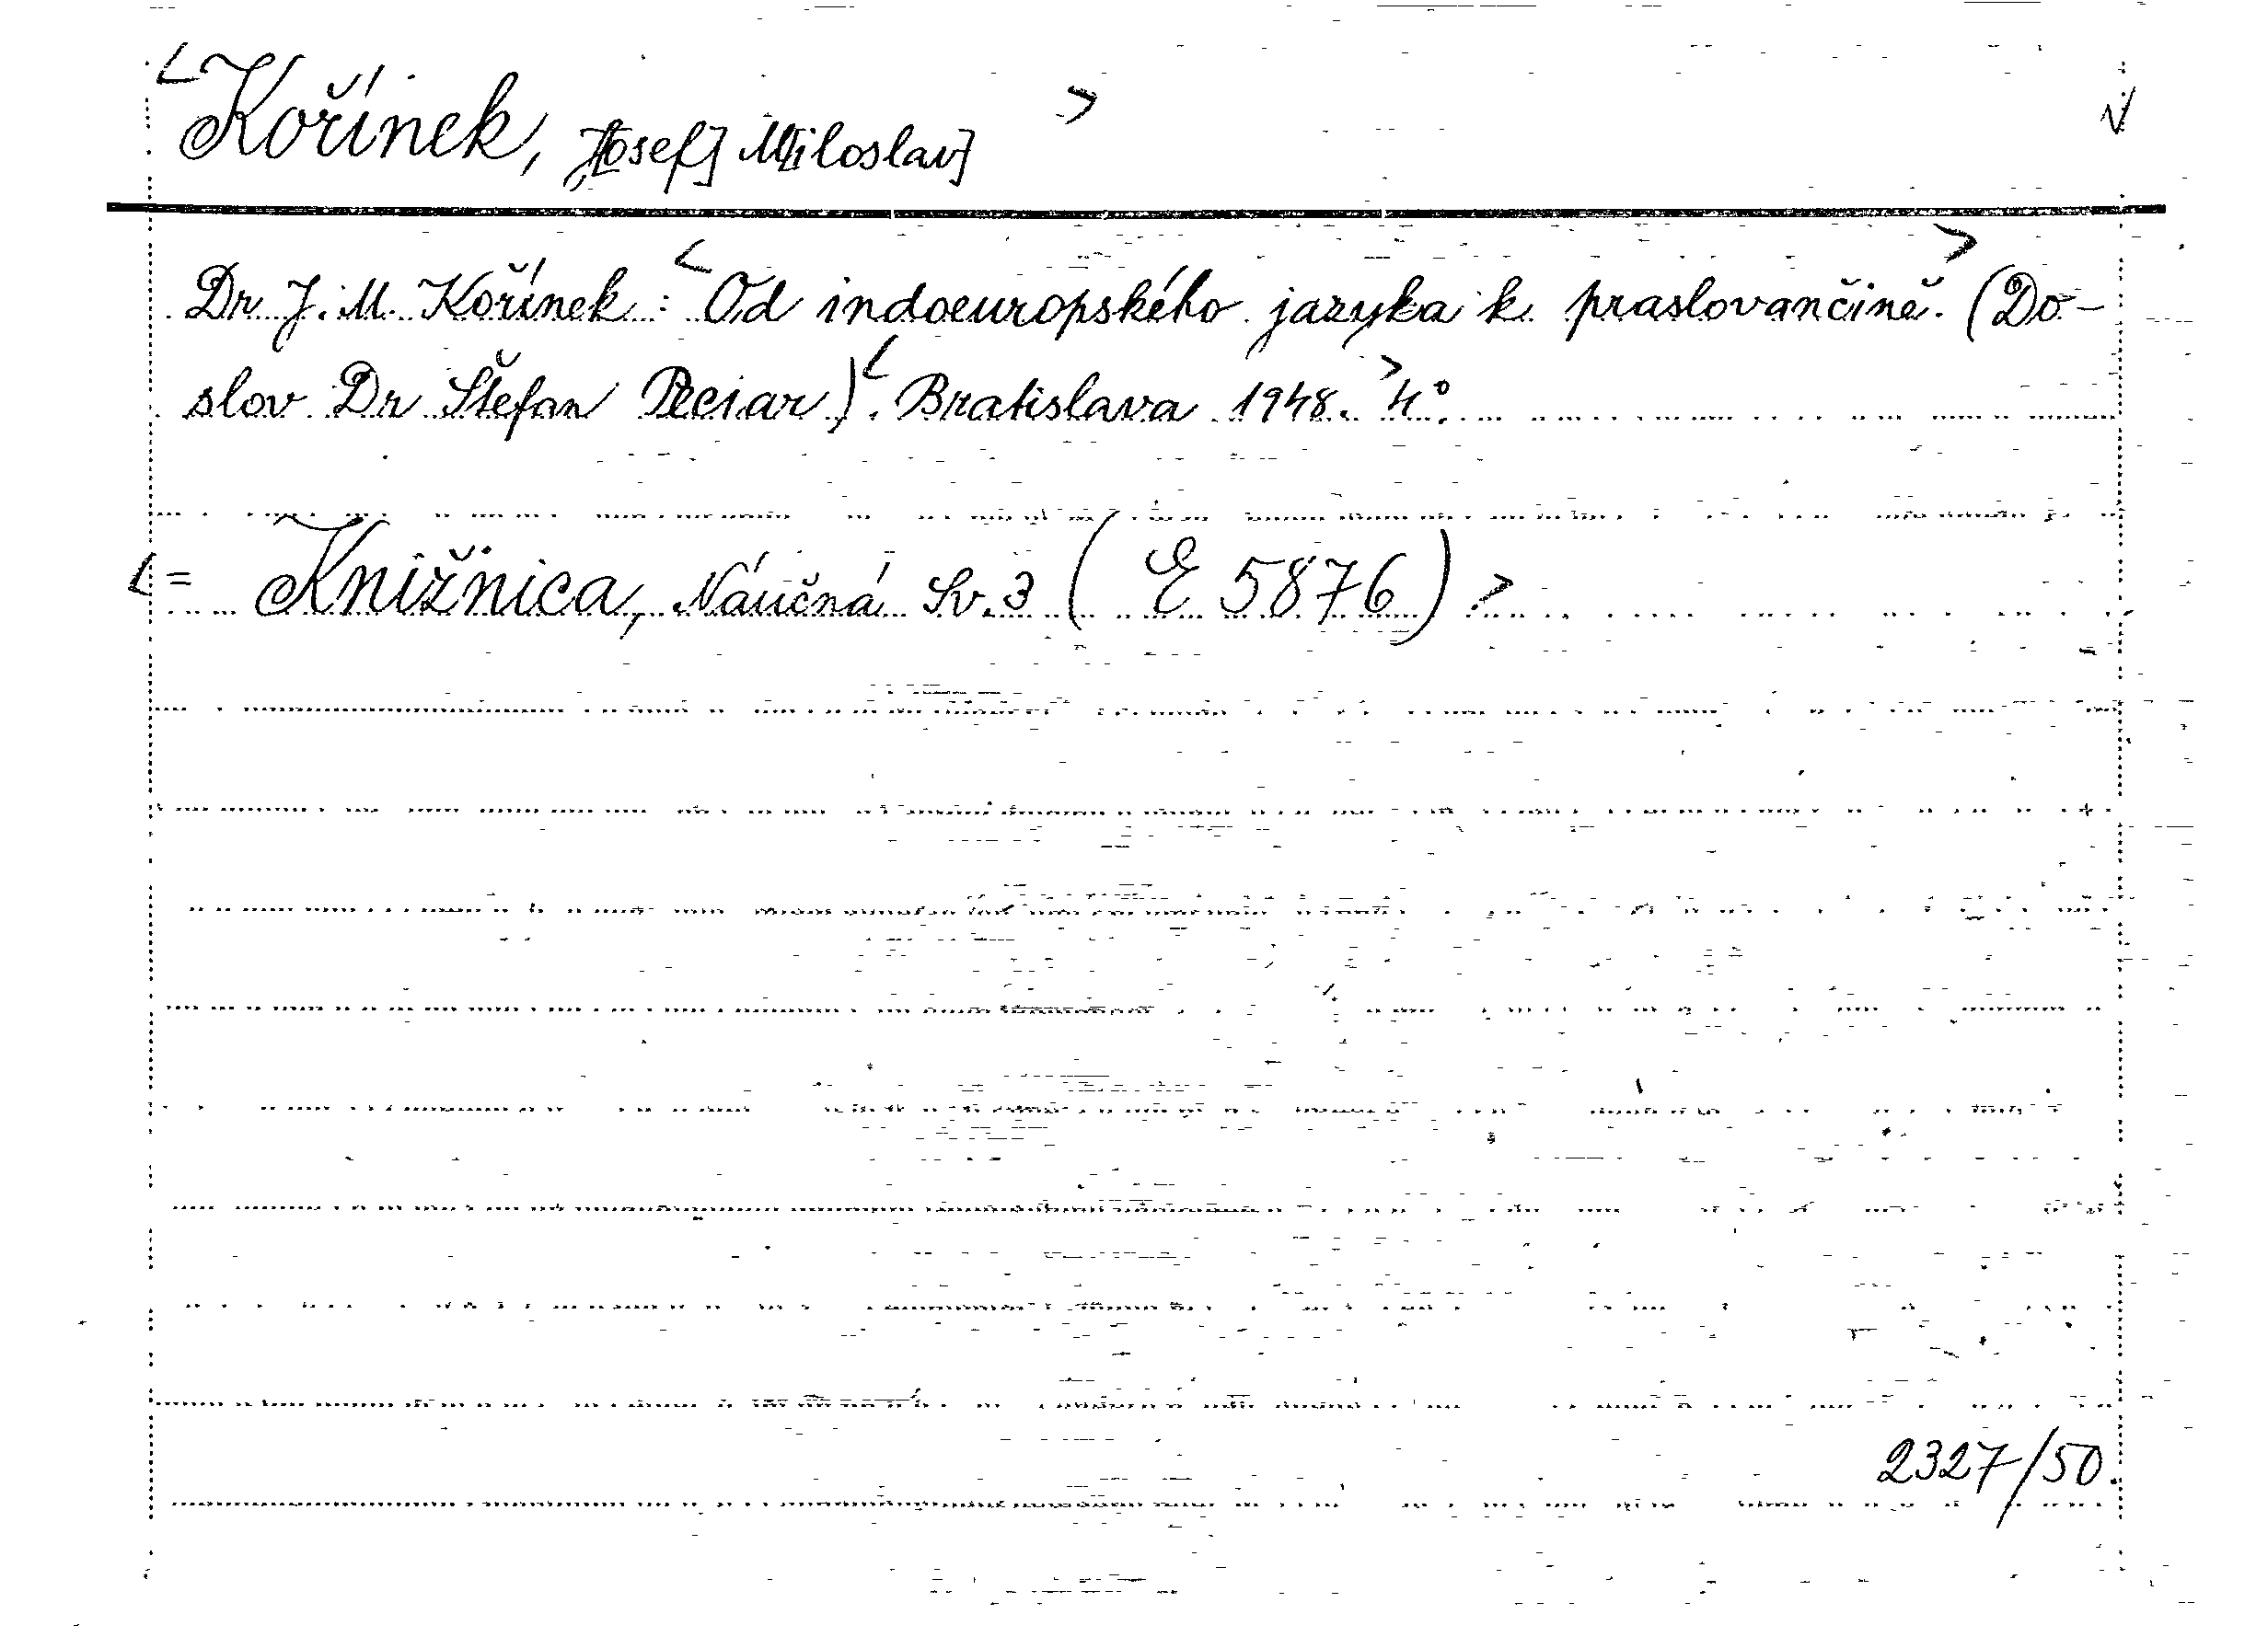 <Kořínek, J[osef] M[iloslav]> √
Dr J. M. Kořínek: <Od indoeuropského jazyka k praslovančině.> (Do-
slov Dr Štefan Peciar).<Bratislava 1948.> 4°.
<= Knižnica, Náučná Sv. 3 (E 5876)>
2327/50.